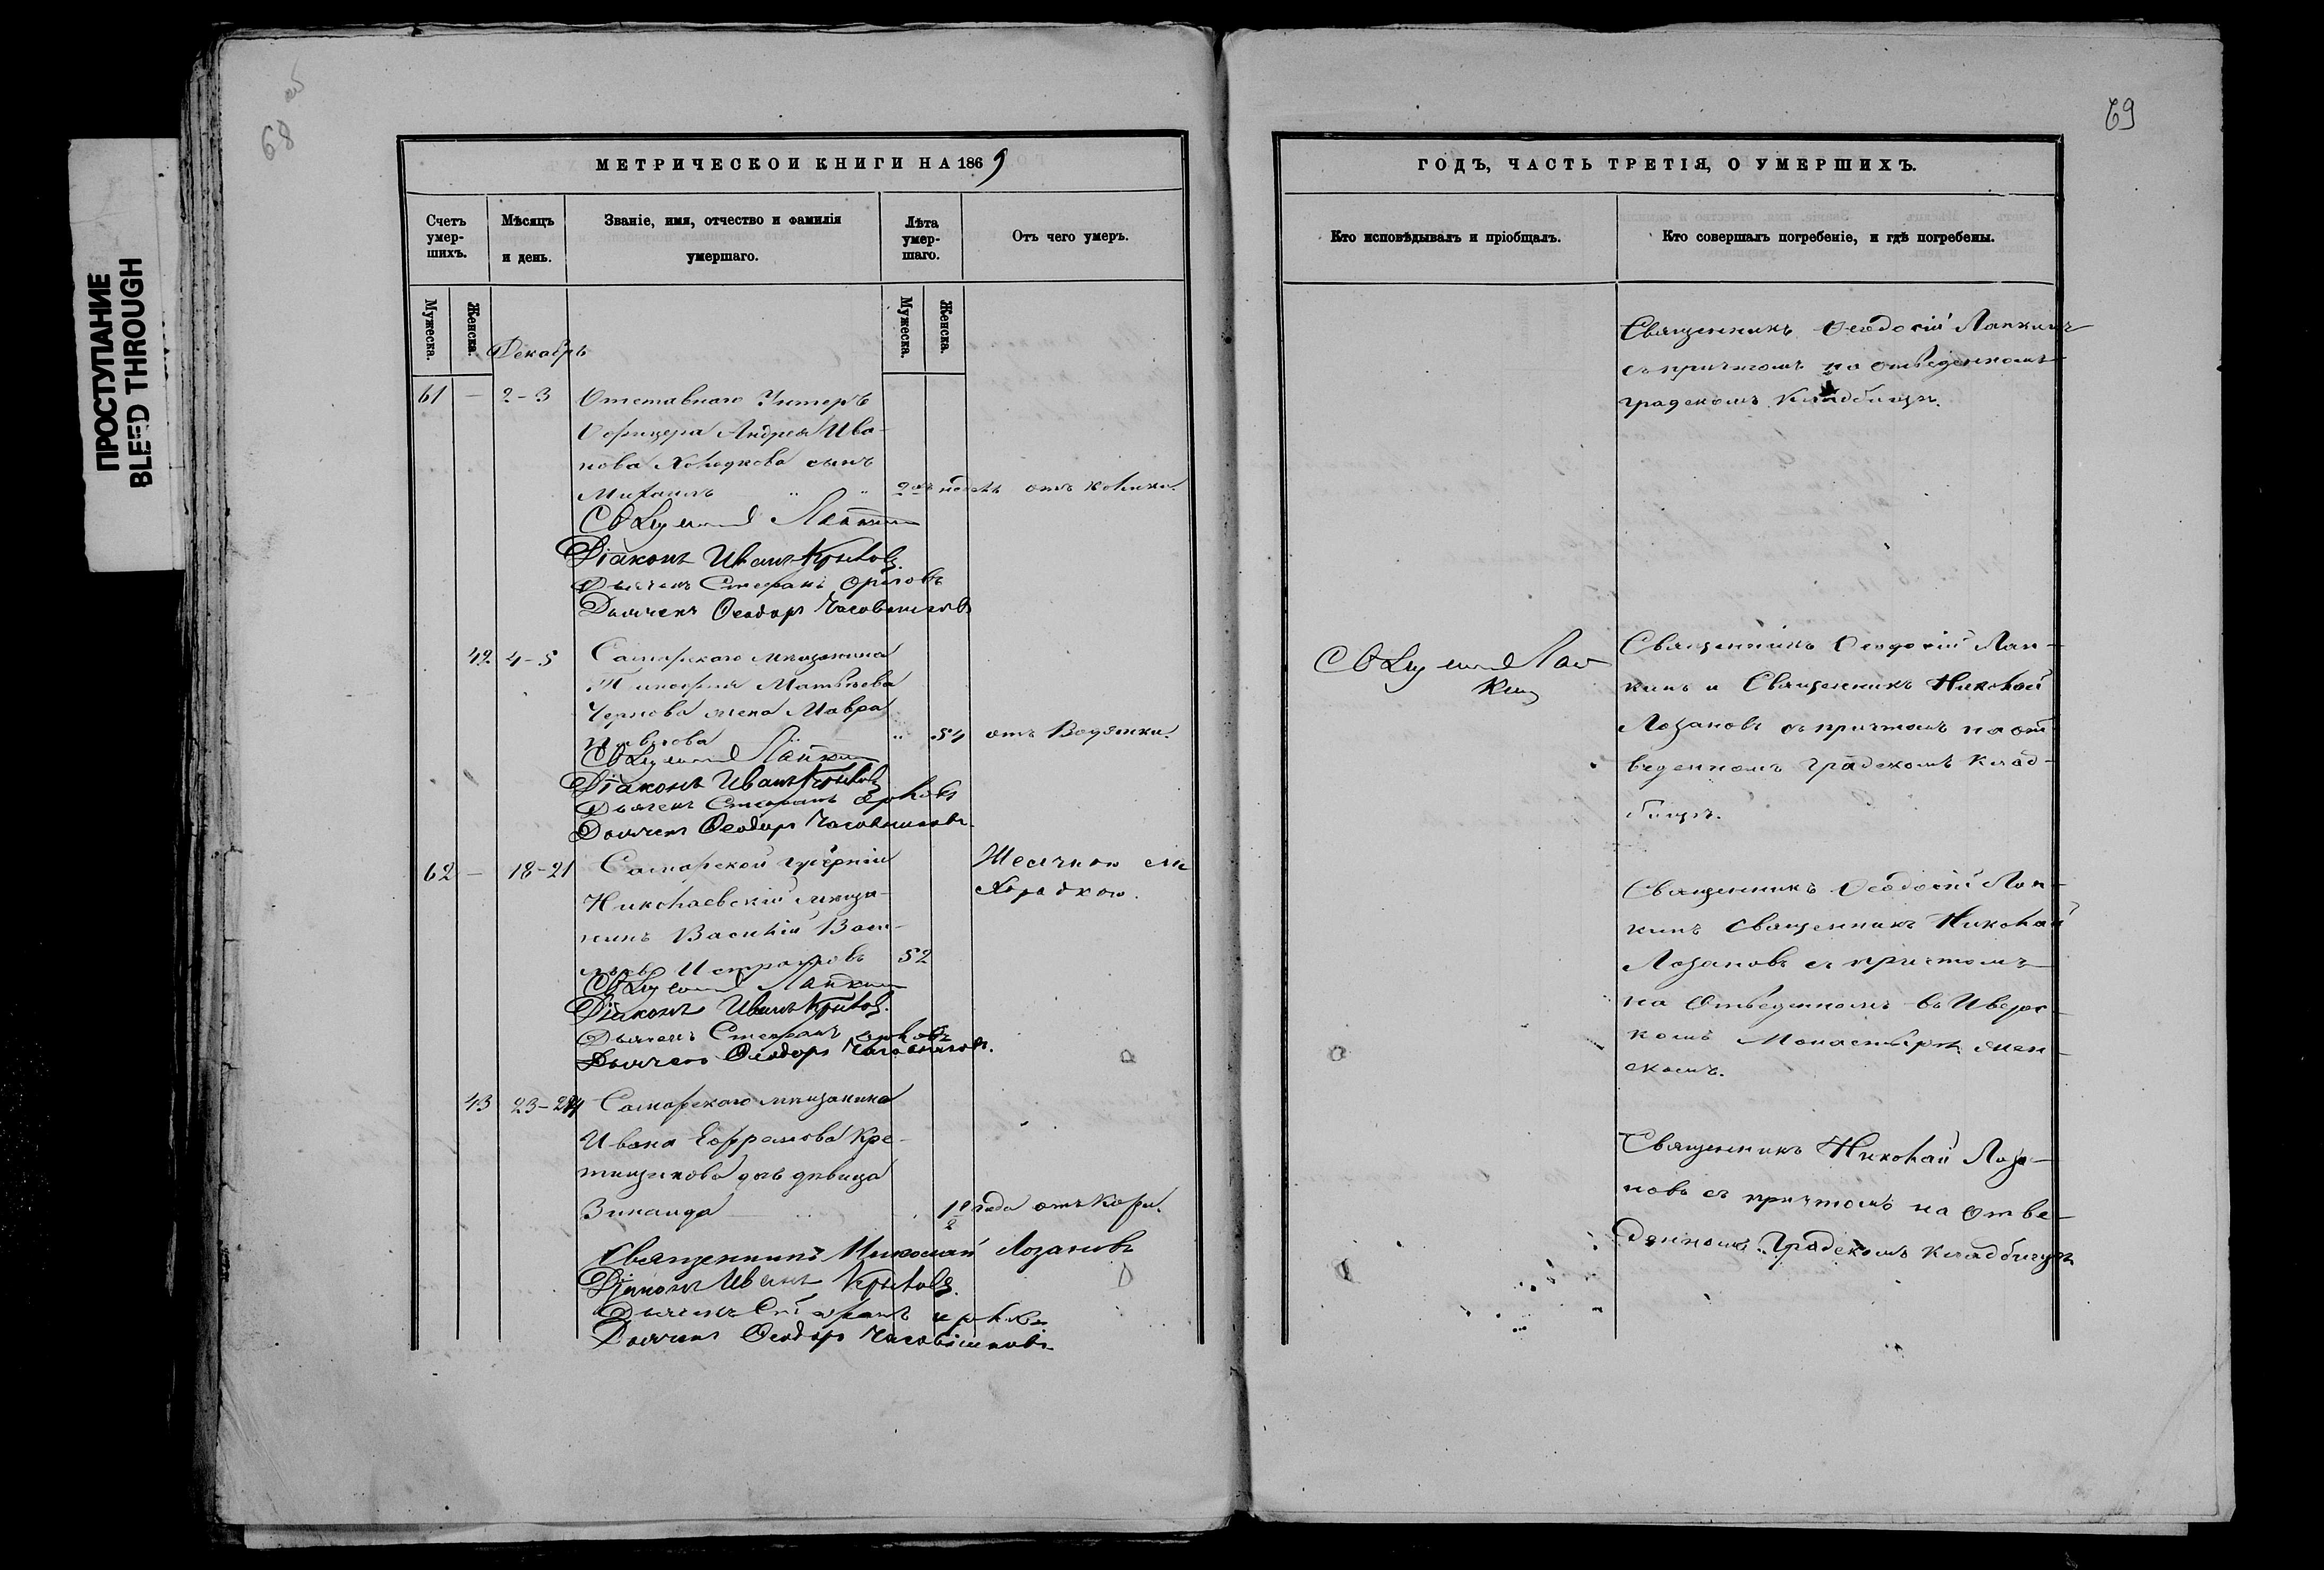 68 об
69
ПРОСТУПАНИЕ
BLEED THROUGH
МЕТРИЧЕСКОЙ КНИГИ НА 1869
Счетъ умер-шихъ.
Мѣсяцъ и день.
Званіе, имя, отчество и фамилія умершаго.
Лѣта умер-шаго.
Отъ чего умеръ.
Мужеска.
Женска.
Мужеска.
Женска.
Декабрь
61 — 2-3 Отставнаго Унтеръ
Офицера Андрея Ива-
нова Холодкова сынъ
Михаилъ " " 2хъ недѣль отъ колики.
Священникъ Лапкинъ
Діаконъ Иванъ Крыловъ.
Дьячекъ Стефанъ Орловъ
Дьячекъ Ѳеодоръ Часовниковъ
42 4-5 Самарскаго мѣщанина
Тимофея Матвѣева
Чернова жена Мавра
" 54 отъ Водянки.
Священникъ Лапкинъ
Діаконъ Иванъ Крыловъ
Дьячекъ Стефанъ Орловъ
Дьячекъ Ѳеодоръ Часовниковъ.
62 — 18-21 Самарской губерніи
Желчною ли
хорадкою.
Николаевскій мѣща-
нинъ Василій Васи-
льевъ 52
Священникъ Лапкинъ
Діаконъ Иванъ Крыловъ.
Дьячекъ Стефанъ Орловъ
Дьячекъ Ѳеодоръ Часовниковъ.
43 23-24 Самарскаго мѣщанина
Ивана Ефрамова Кре-
тищикова дочь дѣвица
Зинаида 1½ года отъ Кори.
Священникъ Николай Лозановъ
Діаконъ Иванъ Крыловъ.
Дьячекъ Стефанъ Орловъ
Дьячекъ Ѳеодоръ Часовниковъ
ГОДЪ, ЧАСТЬ ТРЕТІЯ, О УМЕРШИХЪ.
Кто исповѣдывалъ и пріобщалъ.
Кто совершалъ погребеніе, и гдѣ погребены.
Священникъ Ѳеодосій Лапкинъ
съ причтомъ на отведенномъ
градскомъ Кладбищѣ.
Священникъ Лап
кинъ
Священникъ Ѳеодосій Лап-
кинъ и Священникъ Николай
Лозановъ съ причтомъ на от
веденномъ градскомъ клад-
бищѣ.
Священникъ Ѳеодосій Лап-
кинъ Священникъ Николай
Лозановъ съ причтомъ
на Отведенномъ въ Ивер-
комъ Монастырѣ жен-
скомъ.
Священникъ Николай Лоза-
новъ съ причтомъ на Отве-
денномъ Градскомъ кладбищѣ